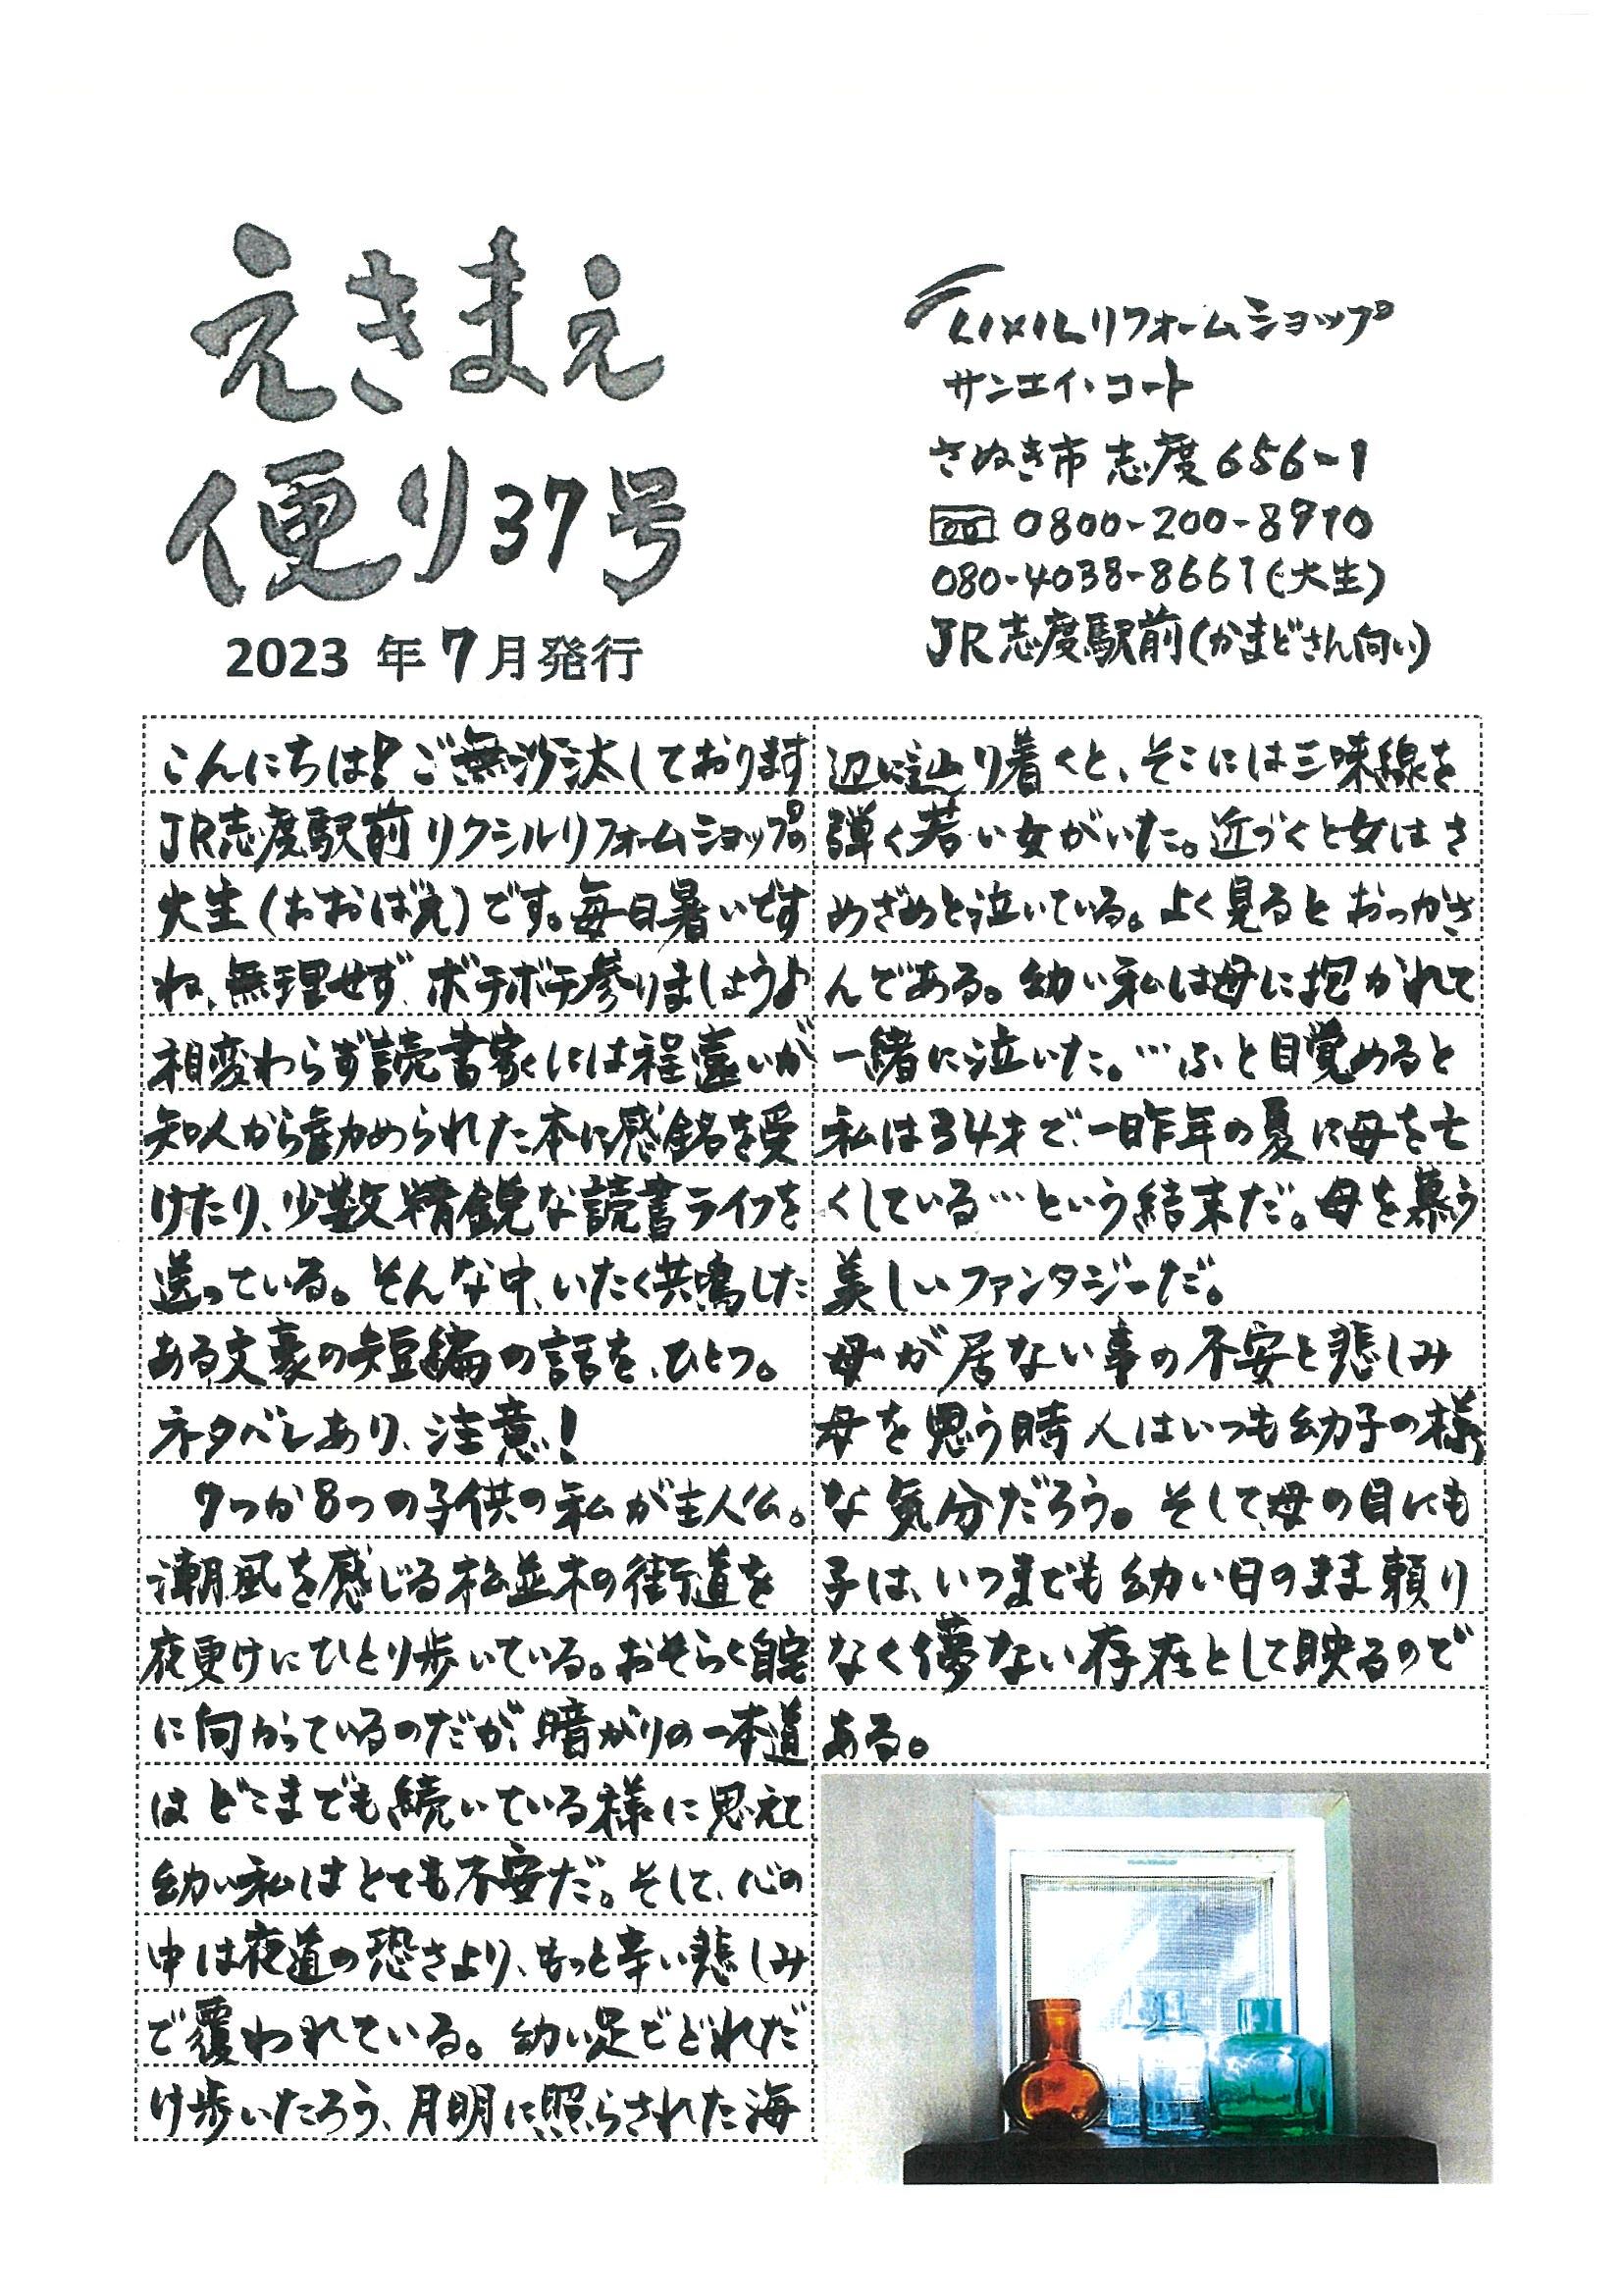 えきまえ
便り37号
2023 年7月発行
LIXILリフォームショップ
サンエイ・コート
さぬき市 志度656-1
0800-200-8910
080-4038-8661(大生)
JR志度駅前(かまどさん向い)
こんにちは!ご無沙汰しております
JR志度駅前リクシルリフォームショップの
大生(おおばえ)です。毎日暑いです
ね、無理せず、ボチボチ参りましょうよ
相変わらず読書家には程遠いが
知人から勧められた本に感銘を受
けたり、少数精鋭な読書ライフを
送っている。そんな中、いたく共鳴した
ある文豪の短編の話を、ひとつ。
ネタバレあり、注意!
7つか8つの子供の私が主人公。
潮風を感じる松並木の街道を
夜更けにひとり歩いている。おそらく自宅
に向かっているのだが、暗がりの一本道
はどこまでも続いている様に思えて
幼い私はとても不安だ。そして、心の
中は夜道の恐さより、もっと辛い悲しみ
で覆われている。幼い足でどれだ
け歩いたろう、月明に照らされた海
辺に辿り着くと、そこには三味線を
弾く若い女がいた。近づくと女はさ
めざめと泣いている。よく見るとおっかさ
んである。幼い私は母に抱かれて
一緒に泣いた。…ふと目覚めると
私は34才で、一昨年の夏に母を亡
くしている…という結末だ。母を慕う
美しいファンタジーだ。
母が居ない事の不安と悲しみ
母を思う時人はいつも幼子の様
な気分だろう。そして、母の目にも
子は、いつまでも幼い日のまま頼り
なく儚ない存在として映るので
ある。